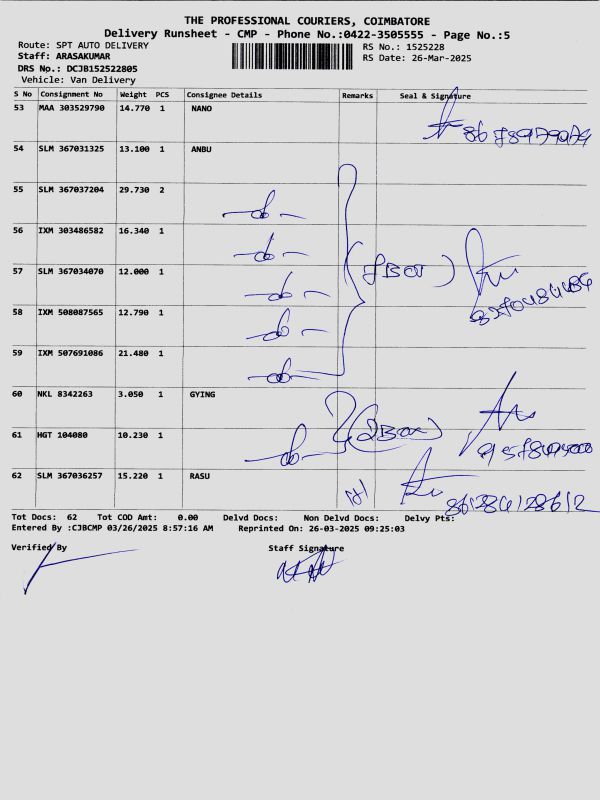 THE PROFESSIONAL COURIERS, COIMBATORE
Delivery Runsheet - CMP - Phone No.:0422-3505555 - Page No.:5
Route: SPT AUTO DELIVERY
RS No.: 1525228
Staff: ARASAKUMAR
RS Date: 26-Mar-2025
DRS No.: DCJB152522805
Vehicle: Van Delivery
S No Consignment No Weight PCS Consignee Details Remarks Seal & Signature
53 MAA 303529790 14.770 1 NANO
54 SLM 367031325 13.100 1 ANBU
55 SLM 367037204 29.730 2 -do-
56 IXM 303486582 16.340 1 -do-
57 SLM 367034070 12.000 1 -do-
58 IXM 508087565 12.790 1 -do-
59 IXM 507691086 21.480 1 -do-
60 NKL 8342263 3.050 1 GYING
61 HGT 104080 10.230 1 -do-
62 SLM 367036257 15.220 1 RASU
Tot Docs: 62 Tot COD Amt: 0.00 Delvd Docs: Non Delvd Docs: Delvy Pts:
Entered By :CJBCMP 03/26/2025 8:57:16 AM Reprinted On: 26-03-2025 09:25:03
Verified By Staff Signature